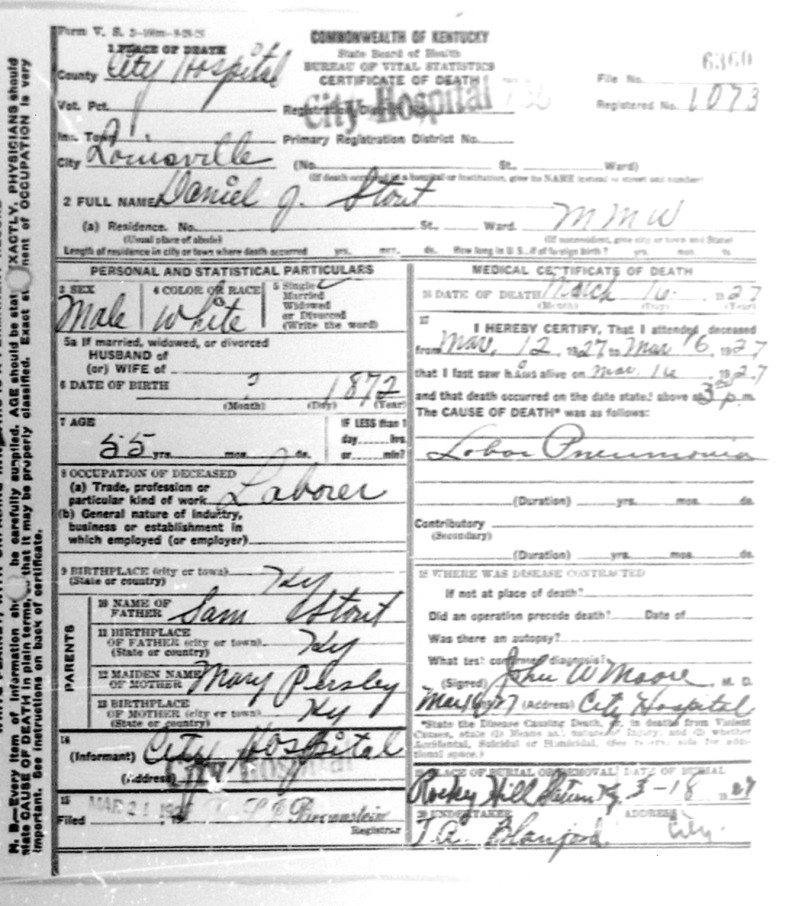 Form V. S.
COMMONWEALTH OF KENTUCKY
State Board of Health
BUREAU OF VITAL STATISTICS
CERTIFICATE OF DEATH
1 PLACE OF DEATH
County City Hospital
File No. 6360
Vot. Pct.
City Hospital
Registered No. 1073
Inc. Town
Primary Registration District No.
City Louisville (No. St., Ward)
(If death occurred in a hospital or institution, give its NAME instead of street and number)
2 FULL NAME Daniel J. Stout
(a) Residence. No. St., Ward. M M W
(Usual place of abode) (If nonresident, give city or town and State)
Length of residence in city or town where death occurred yrs. mos. ds. How long in U. S., if of foreign birth? yrs. mos. ds
PERSONAL AND STATISTICAL PARTICULARS
3 SEX Male
4 COLOR OR RACE White
5 Single
Married
Widowed
or Divorced
(Write the word)
5a If married, widowed, or divorced
HUSBAND of
(or) WIFE of
6 DATE OF BIRTH ? 1872
(Month) (Day) (Year)
7 AGE 55 yrs. mos. ds.
IF LESS than 1
day hrs.
or min?
8 OCCUPATION OF DECEASED
(a) Trade, profession or
particular kind of work Laborer
(b) General nature of industry,
business or establishment in
which employed (or employer)
9 BIRTHPLACE (city or town) Ky
(State or country)
PARENTS
10 NAME OF
FATHER Sam Stout
11 BIRTHPLACE
OF FATHER (city or town) Ky
(State or country)
12 MAIDEN NAME
OF MOTHER Mary Persley
13 BIRTHPLACE
OF MOTHER (city or town) Ky
(State or country)
14
(Informant) City Hospital
(Address) City Hospital
15
Filed MAR 21 19 Brownstein
Registrar
MEDICAL CERTIFICATE OF DEATH
16 DATE OF DEATH March 16 1927
(Month) (Day) (Year)
17
I HEREBY CERTIFY, That I attended deceased
from Mar. 12, 1927 to Mar 16, 1927
that I last saw him alive on Mar. 16 1927
and that death occurred on the date stated above at 3 p.m.
The CAUSE OF DEATH* was as follows:
Lobar Pneumonia
(Duration) yrs. mos. ds.
Contributory
(Secondary)
(Duration) yrs. mos. ds.
18 WHERE WAS DISEASE CONTRACTED
If not at place of death?
Did an operation precede death? Date of
Was there an autopsy?
What test confirmed diagnosis?
(Signed) John W Moore M. D.
(Address) City Hospital
*State the Disease Causing Death, or, in deaths from Violent
Causes, state (1) Means and nature of Injury; and (2) whether
Accidental, Suicidal or Homicidal. (See reverse side for addi-
tional space.)
19 PLACE OF BURIAL OR REMOVAL DATE OF BURIAL
Rocky Hill Station Ky. 3-18 1927
20 UNDERTAKER ADDRESS
J. A. City
N. B.—Every item of information should be carefully supplied. AGE should be stated EXACTLY. PHYSICIANS should
state CAUSE OF DEATH in plain terms, so that it may be properly classified. Exact statement of OCCUPATION is very
important. See instructions on back of certificate.